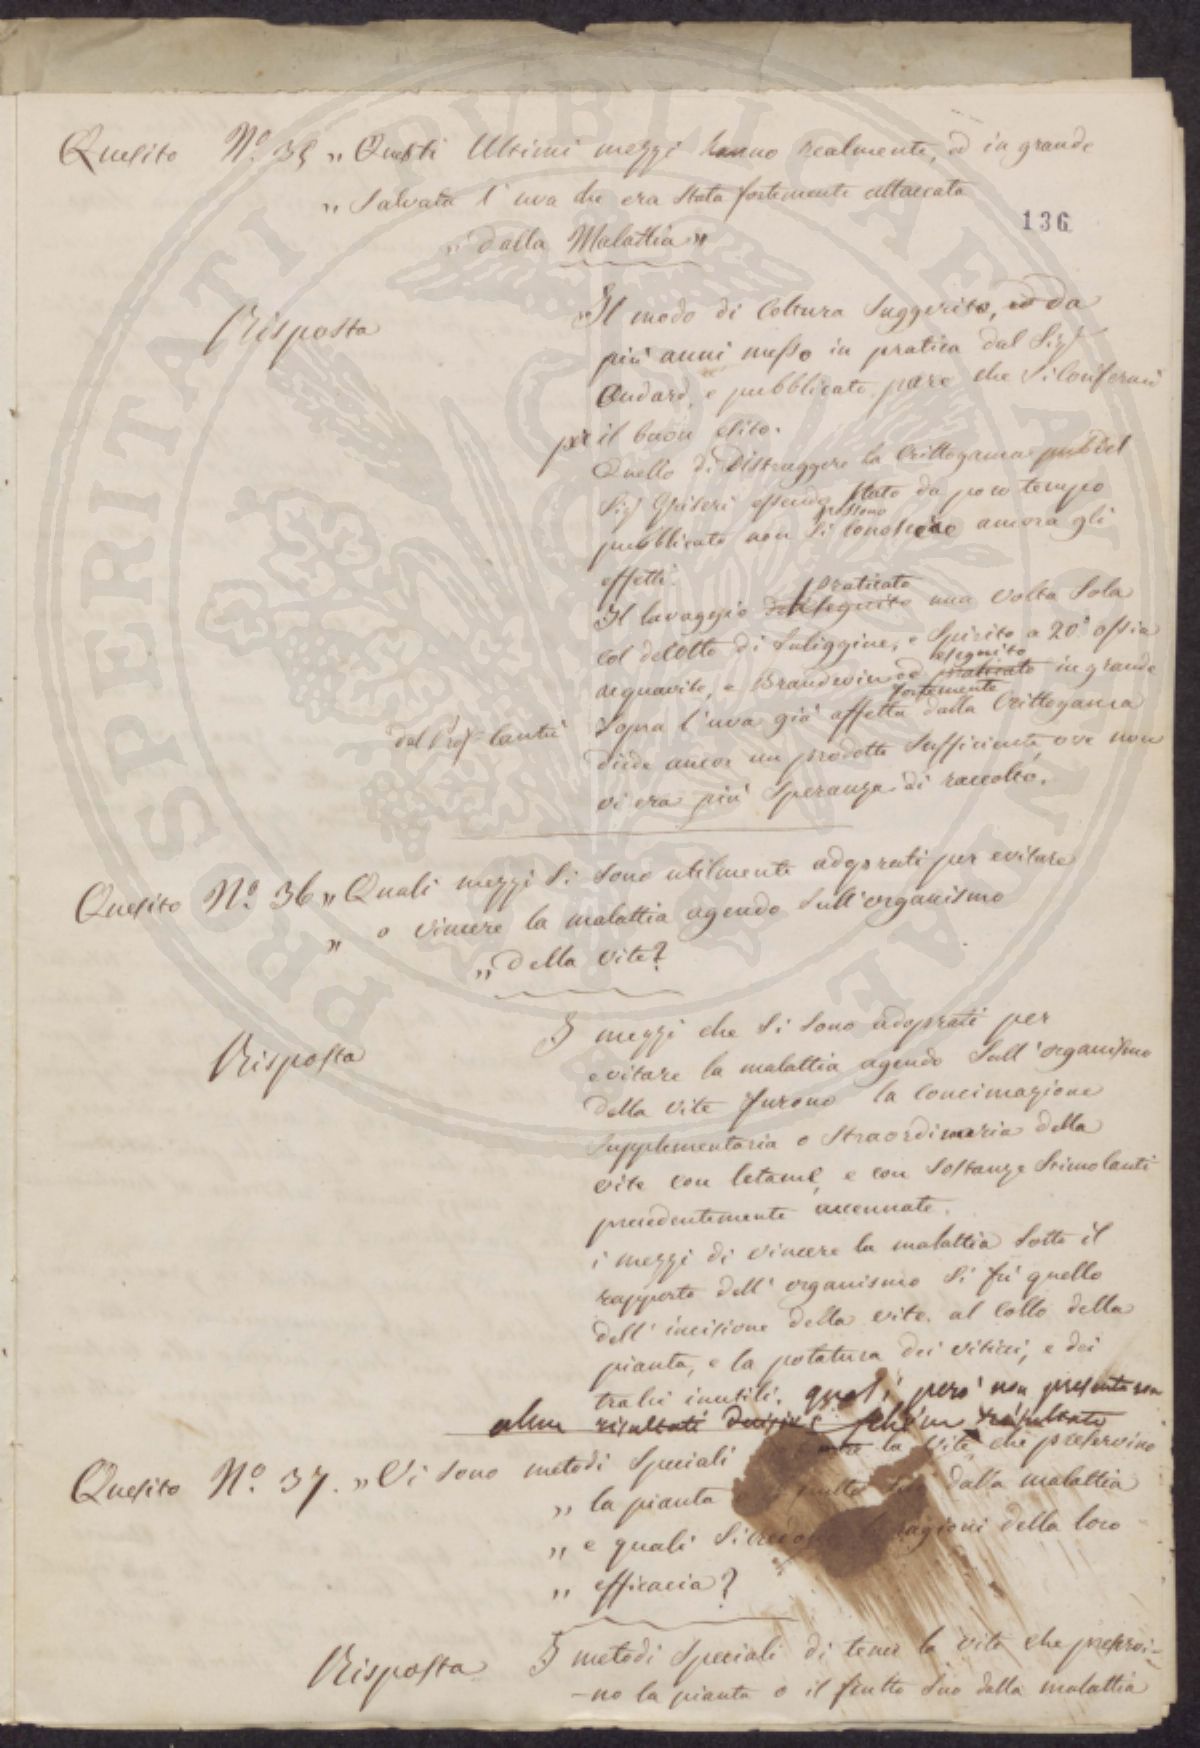 Quesito N.º 35 „ Questi Ultimi mezzi hanno realmente, ed in grande
„ Salvata l'uva che era Stata fortemente attaccata
136
„ dalla Malattia „
Risposta
Il modo di Coltura Suggerito, ed da
più anni messo in pratica dal Sig.r
Audard, e pubblicato pare che Si Confermi
per il buon esito.
Quello di Distruggere la Crittogama del
Sig.r Griseri essendo Stato da poco tempo
possono
pubblicato non Si conoscere ancora gli
effetti.
praticato
Il lavaggio eseguito una volta Sola
col decotto di Fuliggine, e Spirito a 20.º ossia
eseguito
acquavite, e Brandevin ed praticato in grande
fortemente
del Prof. Cantù Sopra l'uva già affetta dalla Crittogama
diede ancor un prodotto Sufficiente, ove non
vi era più Speranza di raccolto.
Quesito N.º 36 „ Quali mezzi Si Sono utilmente adoprati per evitare
„ o vincere la malattia agendo Sull'organismo
„ della vite?
Risposta
I mezzi che Si Sono adoprati per
evitare la malattia agendo Sull'organismo
della vite furono la concimazione
Supplementaria o Straordinaria della
vite con letame, e con Sostanze Stimolanti
precedentemente accennate.
i mezzi di vincere la malattia Sotto il
rapporto dell'organismo Si fù quello
dell'incisione della vite al collo della
pianta, e la potatura dei viticci, e dei
tralci inutili, quali però non presentaron
alcun risultati decisivi felice risultato
Quesito N.º 37. „ Vi Sono metodi Speciali la Vite che preservino
„ la pianta dalla malattia
„ e quali Si credono ragioni della loro
„ efficacia?
Risposta
I metodi Speciali di tener la vite che preservi-
-no la pianta o il frutto Suo dalla malattia